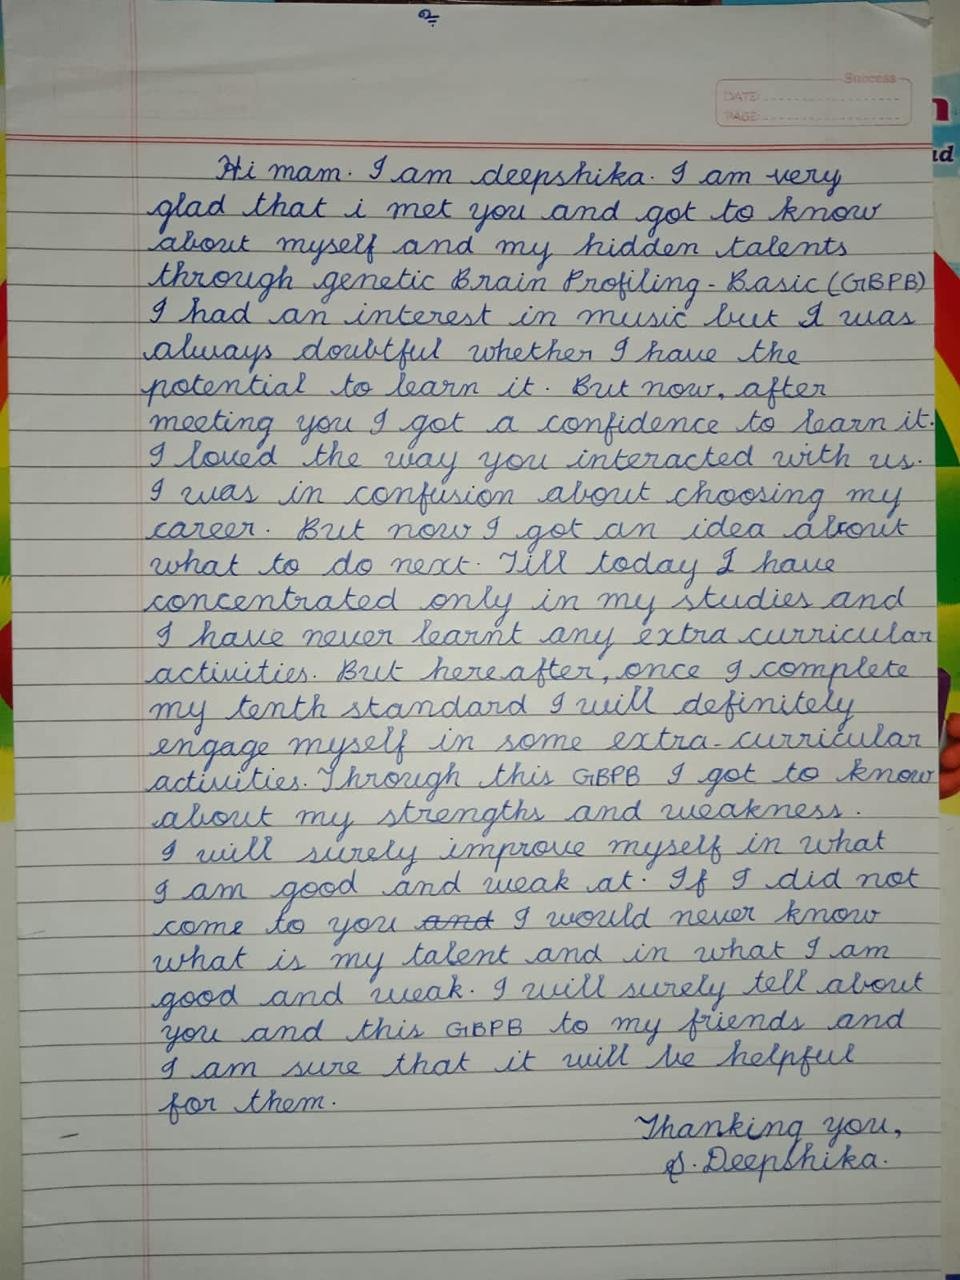 உ
Success
DATE:
PAGE:
Hi mam. I am deepshika. I am very
glad that i met you and got to know
about myself and my hidden talents
through genetic Brain Profiling - Basic (GBPB)
I had an interest in music but I was
always doubtful whether I have the
potential to learn it. But now, after
meeting you I got a confidence to learn it.
I loved the way you interacted with us.
I was in confusion about choosing my
career. But now I got an idea about
what to do next. Till today I have
concentrated only in my studies and
I have never learnt any extra curricular
activities. But hereafter, once I complete
my tenth standard I will definitely
engage myself in some extra-curricular
activities. Through this GBPB I got to know
about my strengths and weakness.
I will surely improve myself in what
I am good and weak at. If I did not
come to you and I would never know
what is my talent and in what I am
good and weak. I will surely tell about
you and this GBPB to my friends and
I am sure that it will be helpful
for them.
Thanking you,
S. Deepshika.